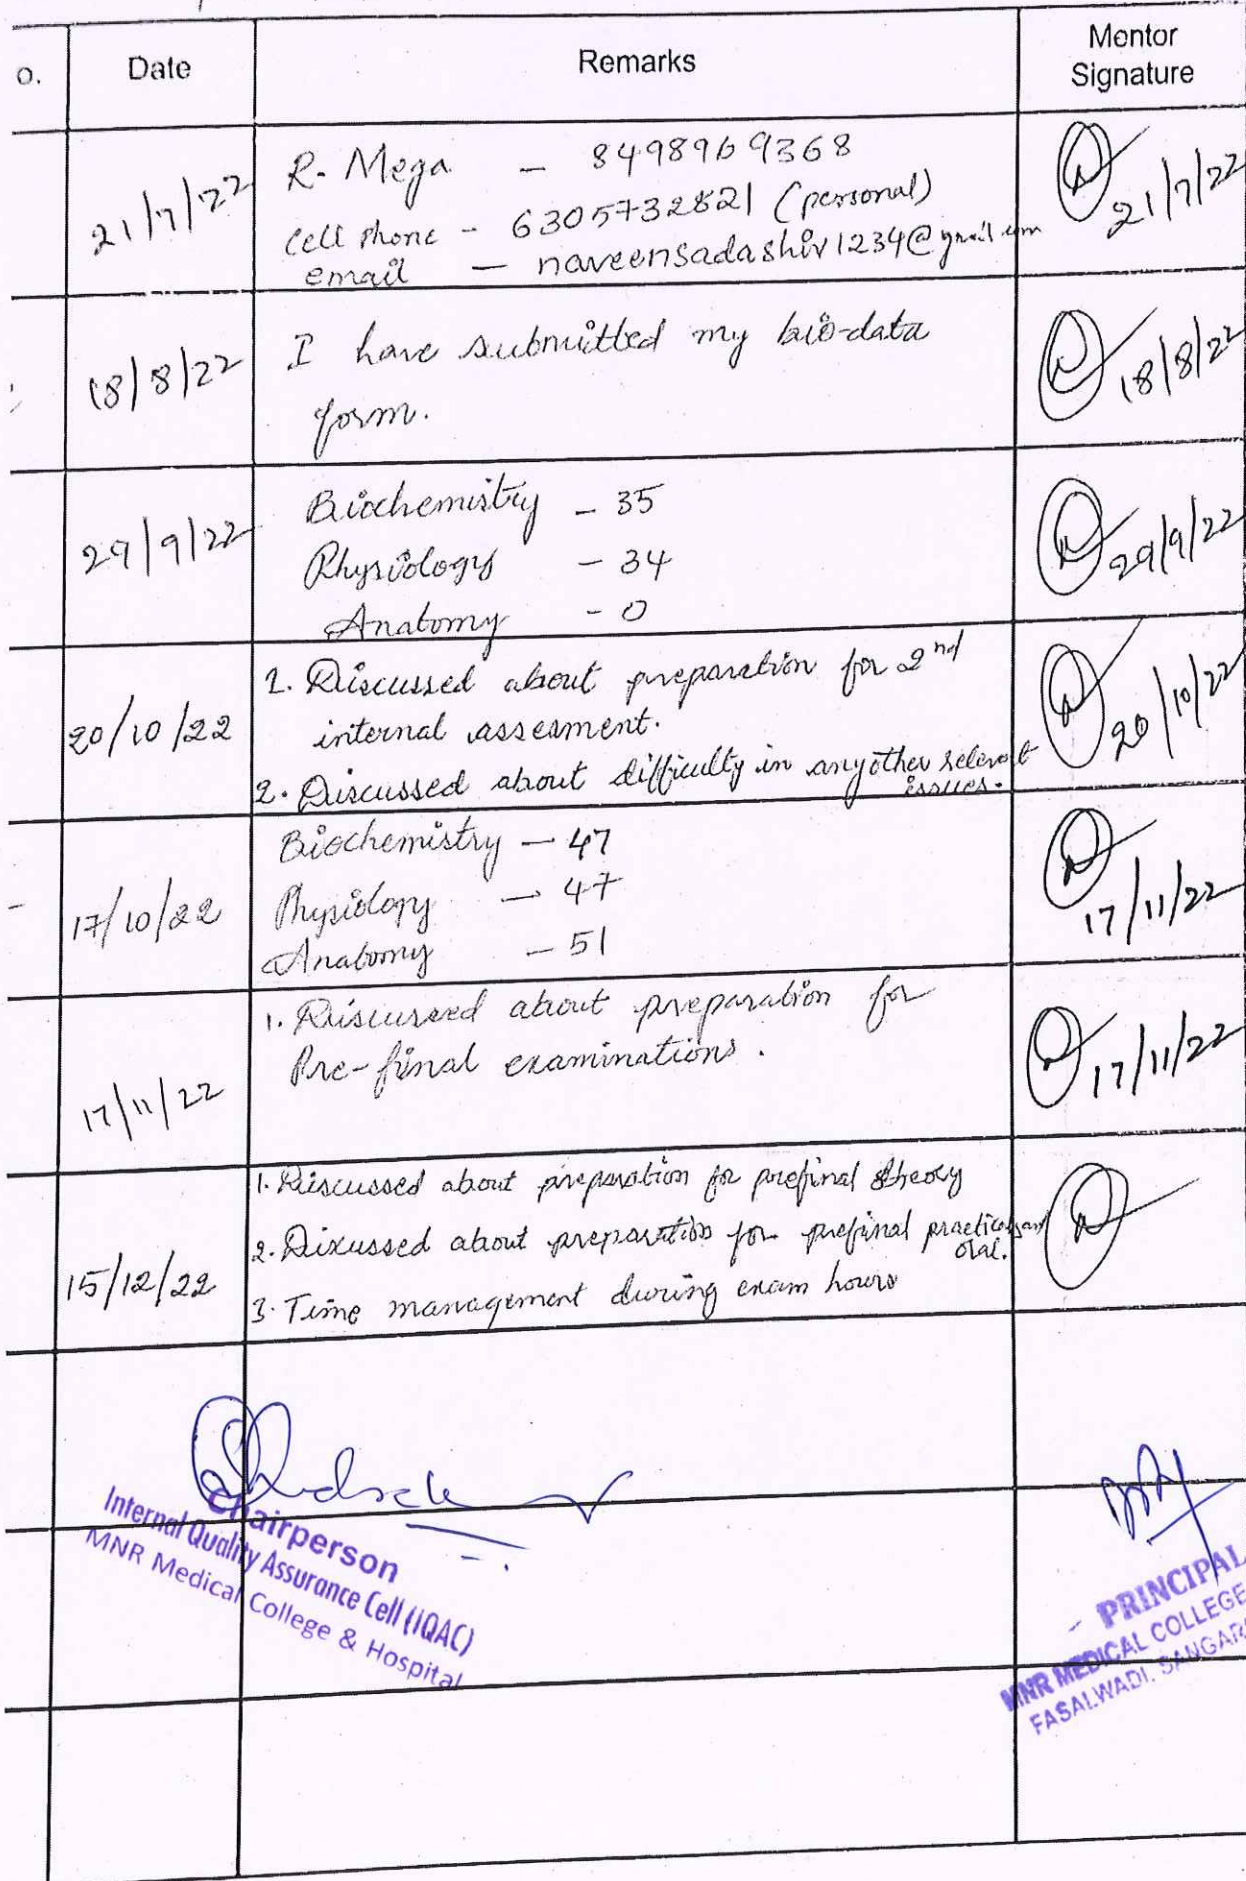 o. Date Remarks Mentor Signature
21/7/22 R. Mega - 8498969368
cell phone - 6305732821 (personal)
email - naveensadashiv1234@gmail.com
21/7/22
18/8/22 I have submitted my bio-data
form.
18/8/22
29/9/22 Biochemistry - 35
Physiology - 34
Anatomy - 0
29/9/22
20/10/22 1. Discussed about preparation for 2nd
internal assesment.
2. Discussed about difficulty in anyother relevant
issues.
20/10/22
17/10/22 Biochemistry - 47
Physiology - 47
Anatomy - 51
17/11/22
17/11/22 1. Discussed about preparation for
Pre-final examinations.
17/11/22
15/12/22 1. Discussed about preparation for prefinal theory
2. Discussed about preparation for prefinal practicals and
oral.
3. Time management during exam hours
Chairperson
Internal Quality Assurance Cell (IQAC)
MNR Medical College & Hospital
PRINCIPAL
MNR MEDICAL COLLEGE
FASALWADI, SANGAR